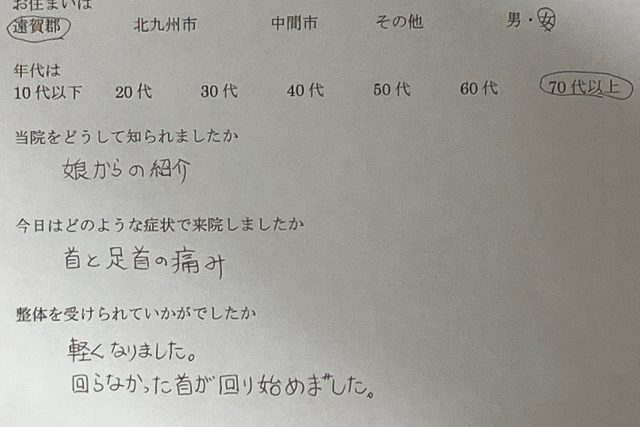 お住まいは
遠賀郡 北九州市 中間市 その他 男・女
年代は
10代以下 20代 30代 40代 50代 60代 70代以上
当院をどうして知られましたか
娘からの紹介
今日はどのような症状で来院しましたか
首と足首の痛み
整体を受けられていかがでしたか
軽くなりました。
回らなかった首が回り始めました。